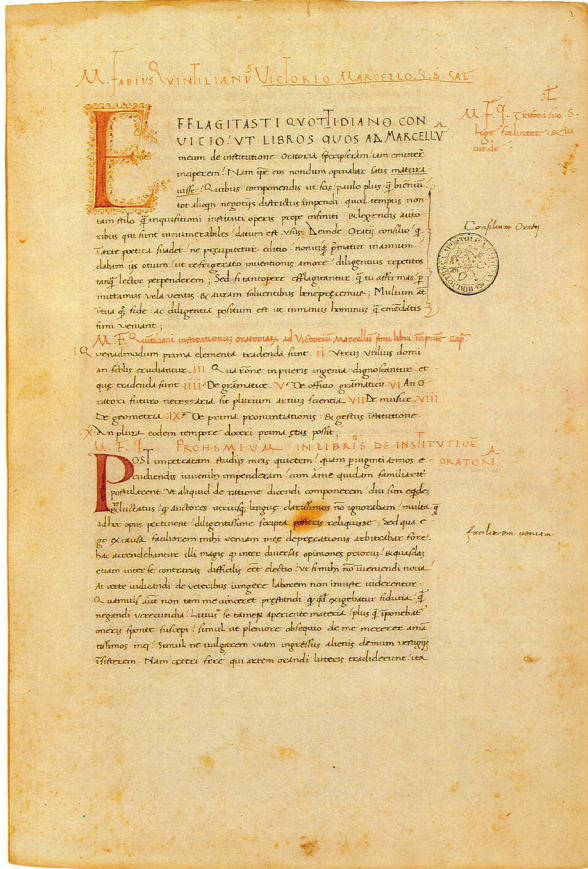 M. FABIUS QVINTILIANVS VICTORIO MARCELLO. S. D. SAL
EFFLAGITASTI QVOTIDIANO CON
VICIO: VT LIBROS QVOS AD MARCELLV̄
meum de institutione oratoria scripseram: iam emittere
inciperem: Nam ipse eos nondum opinabar satis matura
uisse. Quibus componendis ut scis paulo plus q̄ bienniū
tot alioqui negotijs districtus impendi. quod tempus non
tam stilo q̄ inquisitioni instituti operis prope infiniti & legendis auto
ribus qui sunt innumerabiles datum est. Vsus Deinde Oratij consilio q̄
ī arte poetica suadet ne precipitetur editio nonūq̄ prematur in annum.
dabam ijs otium ut refrigerato inuentionis amore diligentius repetitos
tanq̄ lector perpenderem; Sed si tantopere efflagitantur q̄ tu affirmas p̄
mittamus vela ventis & oram soluentibus bene precemur; Multum āt
ī tua q̄ fide ac diligentia positum est ut in manus hominū q̄ emēdatis
simi veniant;
M. F. Quintiliani institutionū oratoriarū ad Victoriū Marcellū primi libri īcipiūt cap.
I Quemadmodum prima elementa tradenda sunt. II Vtrum vtilius domi
an scolis erudiantur. III Qua rōne in pueris ingenia dignoscantur et
que tradenda sint IIII De grāmatice. V De officio grāmatici VI An o
ratori futuro necessaria sit plurium artiū scientia VII De musice VIII
De geometria IX De prima pronuntiationis & gestus īstitutione
X An plura eodem tempore doceri prima ętas possit;
M. F. Q. PROHEMIVM IN LIBRIS DE INSTITVTIŌE
ORATORIA
POST impetratam studijs meis quietem quam per uiginti annos e
rudiendis iuuenibus impenderam cum a me quidam familiariter
postularent Vt aliquid de ratione dicendi componerem diu sum eqdē
reluctatus q̄ auctores utriusq̄ linguę clarissimos nō ignorabam multa q̄
ad hoc opus pertinent diligentissime scripta posteris reliquisse. Sed qua e
go ex causa faciliorem mihi veniam meę deprecationis arbitrabar fore
hac accendebantur illi magis q̄ inter diuersas opiniones priorū & quasdā
etiam inter se contrarias difficilis eēt electio Vt si mihi nō inueniendi noua
At certe iudicandi de veteribus iungere laborem non iniuste viderentur.
Quamuis aūt non tam me vinceret prestandi q̄ exigebatur fiducia q̄
negandi verecundia Latius se tamen aperiente materia plus q̄ īponebat
oneris sponte suscepi simul ut pleniore obsequio de me mererer amā
tissimos mei Simul ne vulgarem viam ingressus alienis demum vestigijs
īsisterem. Nam ceteri fere qui artem orandi litteris tradiderunt ita
M. F. Q. Trifoni suo S.
lege foeliciter
Consilium Oratij
faciliorem veniam